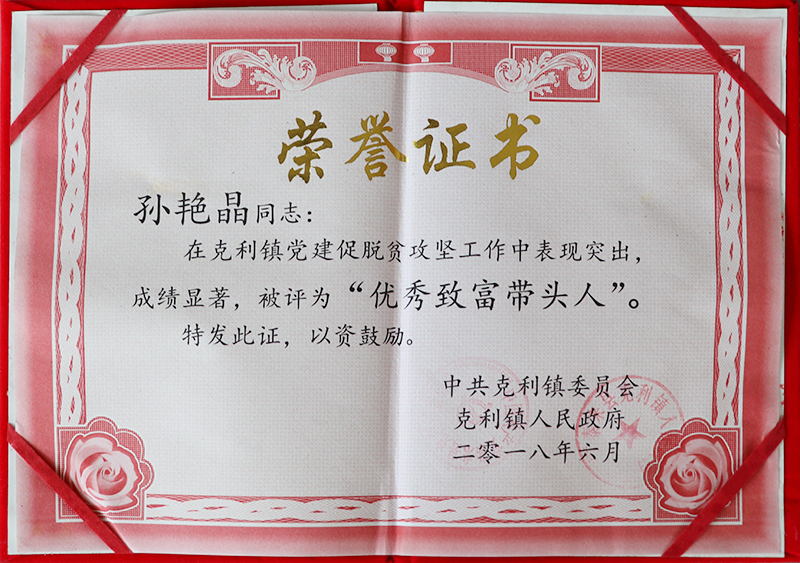 荣誉证书
孙艳晶同志：
在克利镇党建促脱贫攻坚工作中表现突出，
成绩显著，被评为“优秀致富带头人”。
特发此证，以资鼓励。
中共克利镇委员会
克利镇人民政府
二零一八年六月